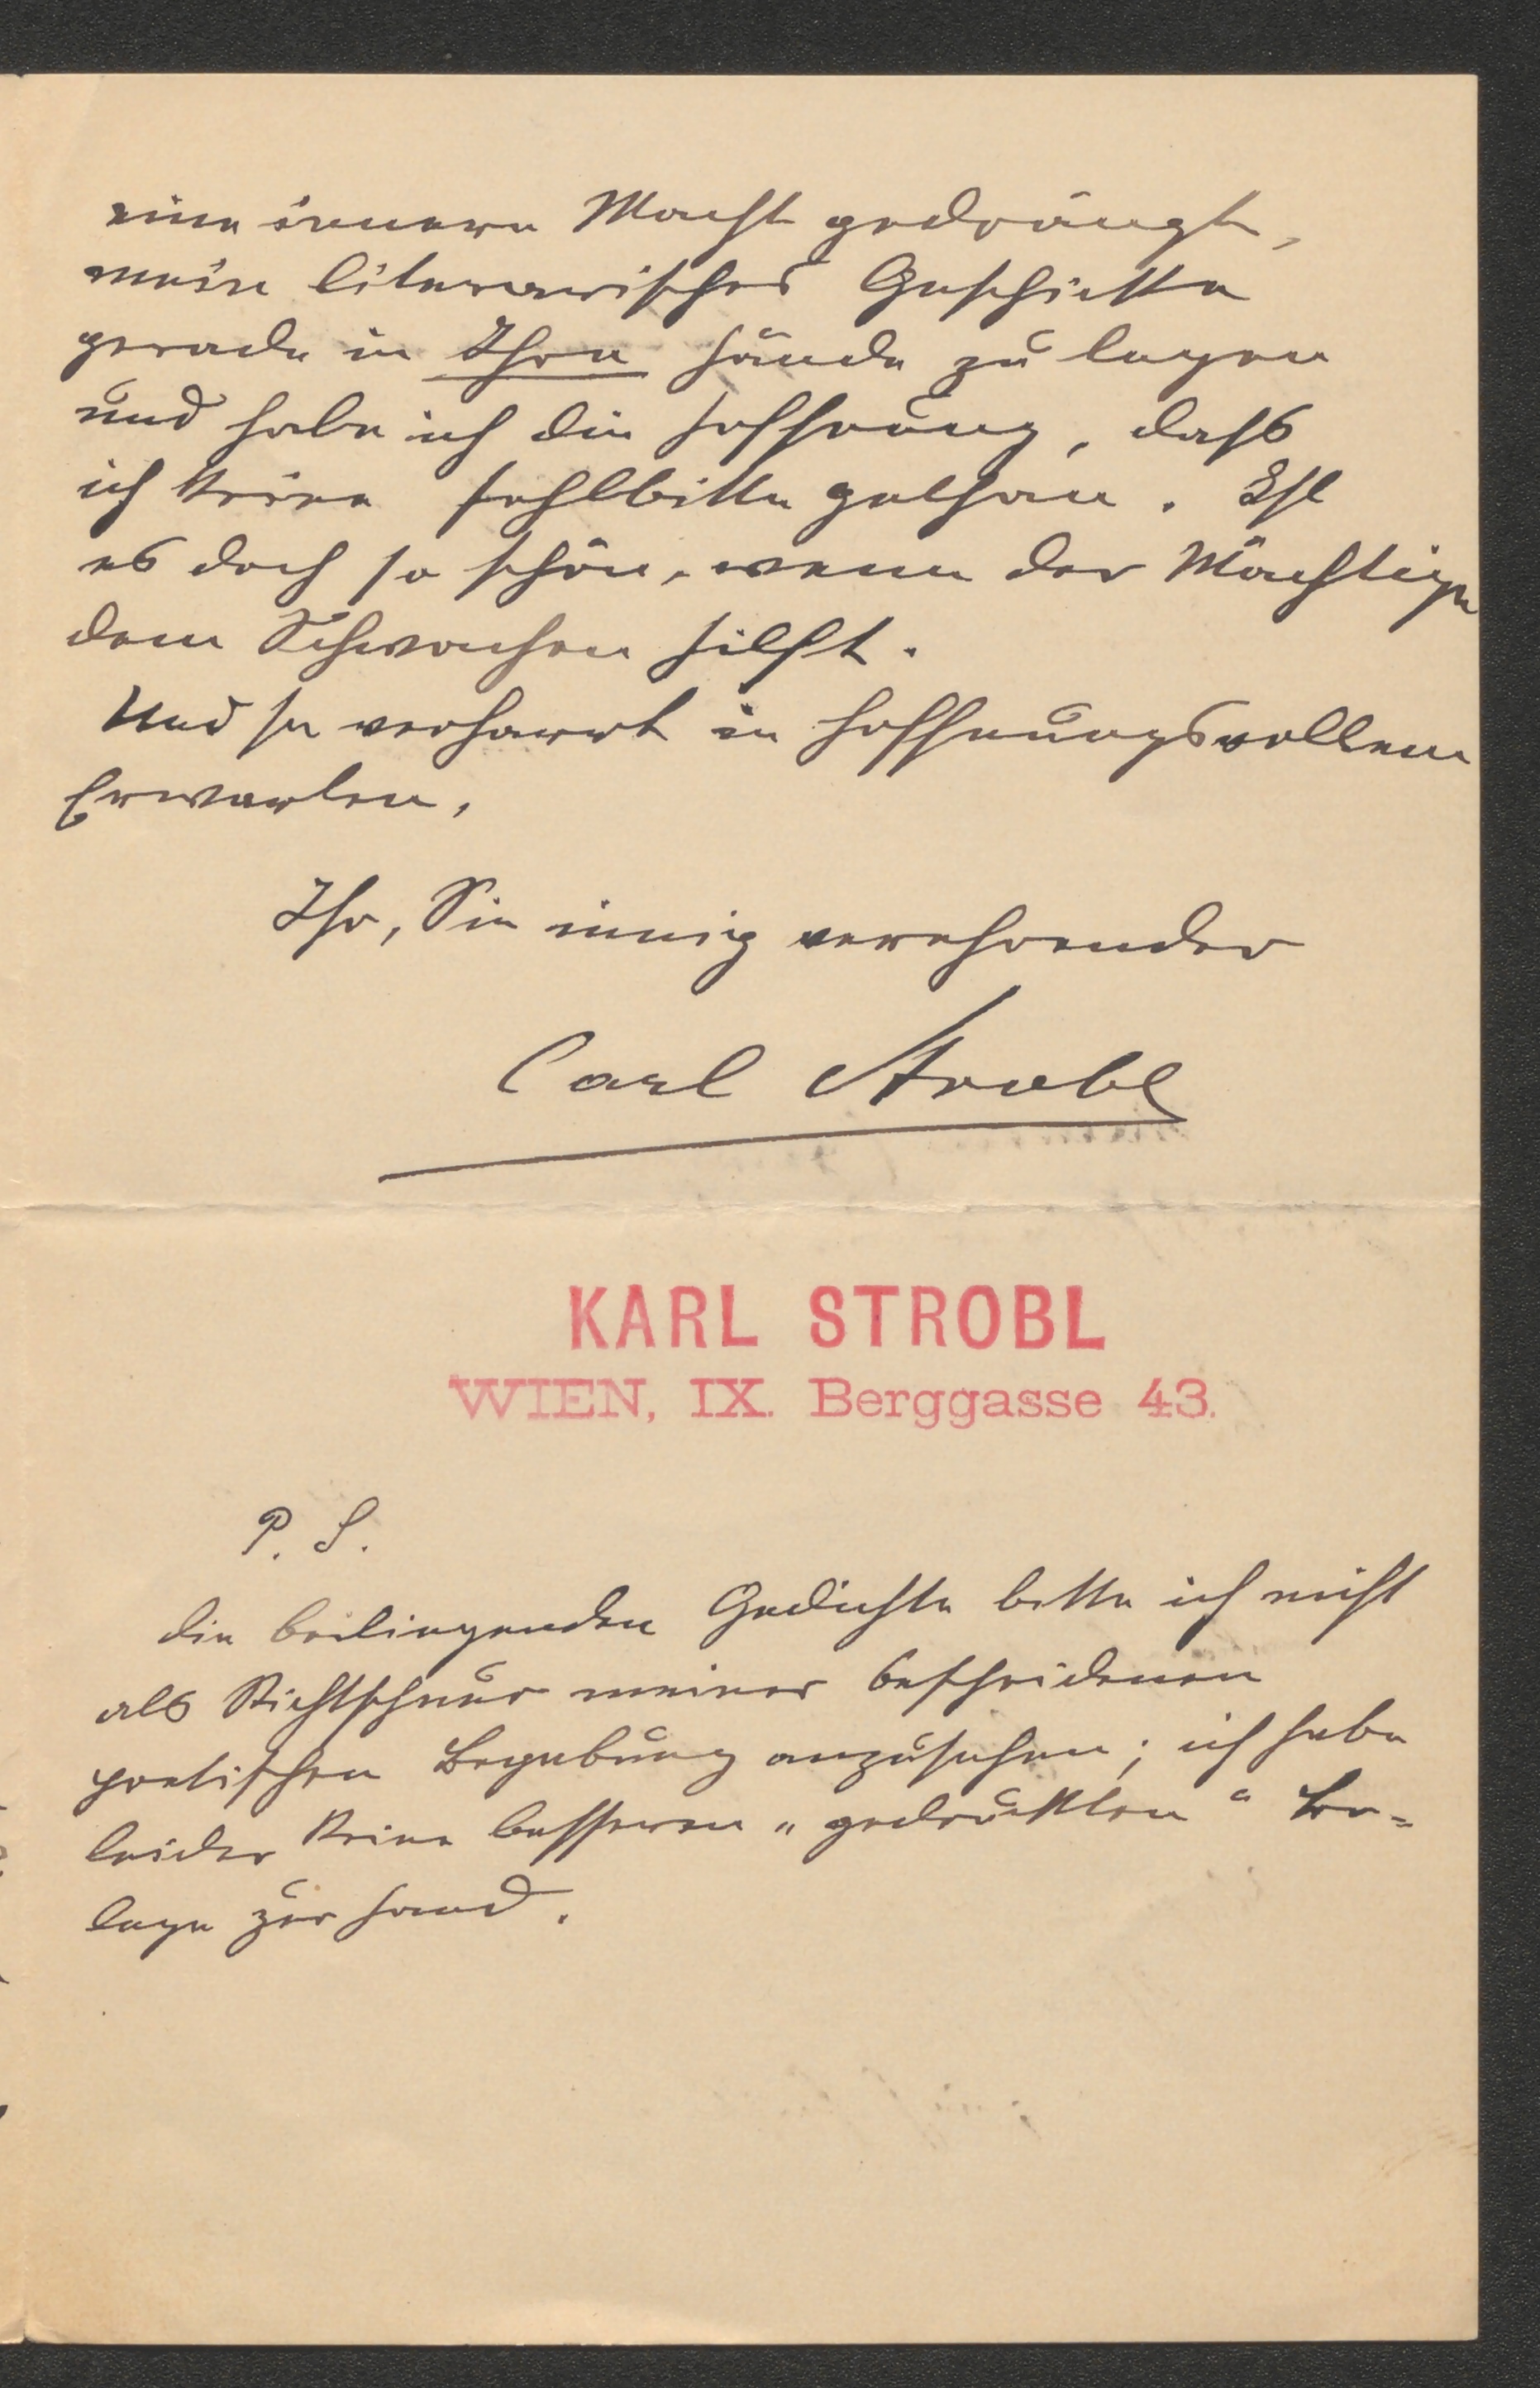 eine innere Macht gedrängt,
mein literarisches Geschicke
gerade in Ihre Hände zu legen
und habe ich die Hoffnung, daß
ich keine Fehlbitte gethan. Ist
es doch so schön, wenn der Mächtige
dem Schwachen hilft.
Und so verharrt in hoffnungsvollem
Erwarten,
Ihr, Sie innig verehrender
Carl Strobl
KARL STROBL
WIEN, IX. Berggasse 43.
P. S.
Die beiliegenden Gedichte bitte ich nicht
als Richtschnur meiner bescheidenen
poetischen Begabung anzusehen; ich habe
leider keine besseren „gedruckten“ Be-
lege zur Hand.